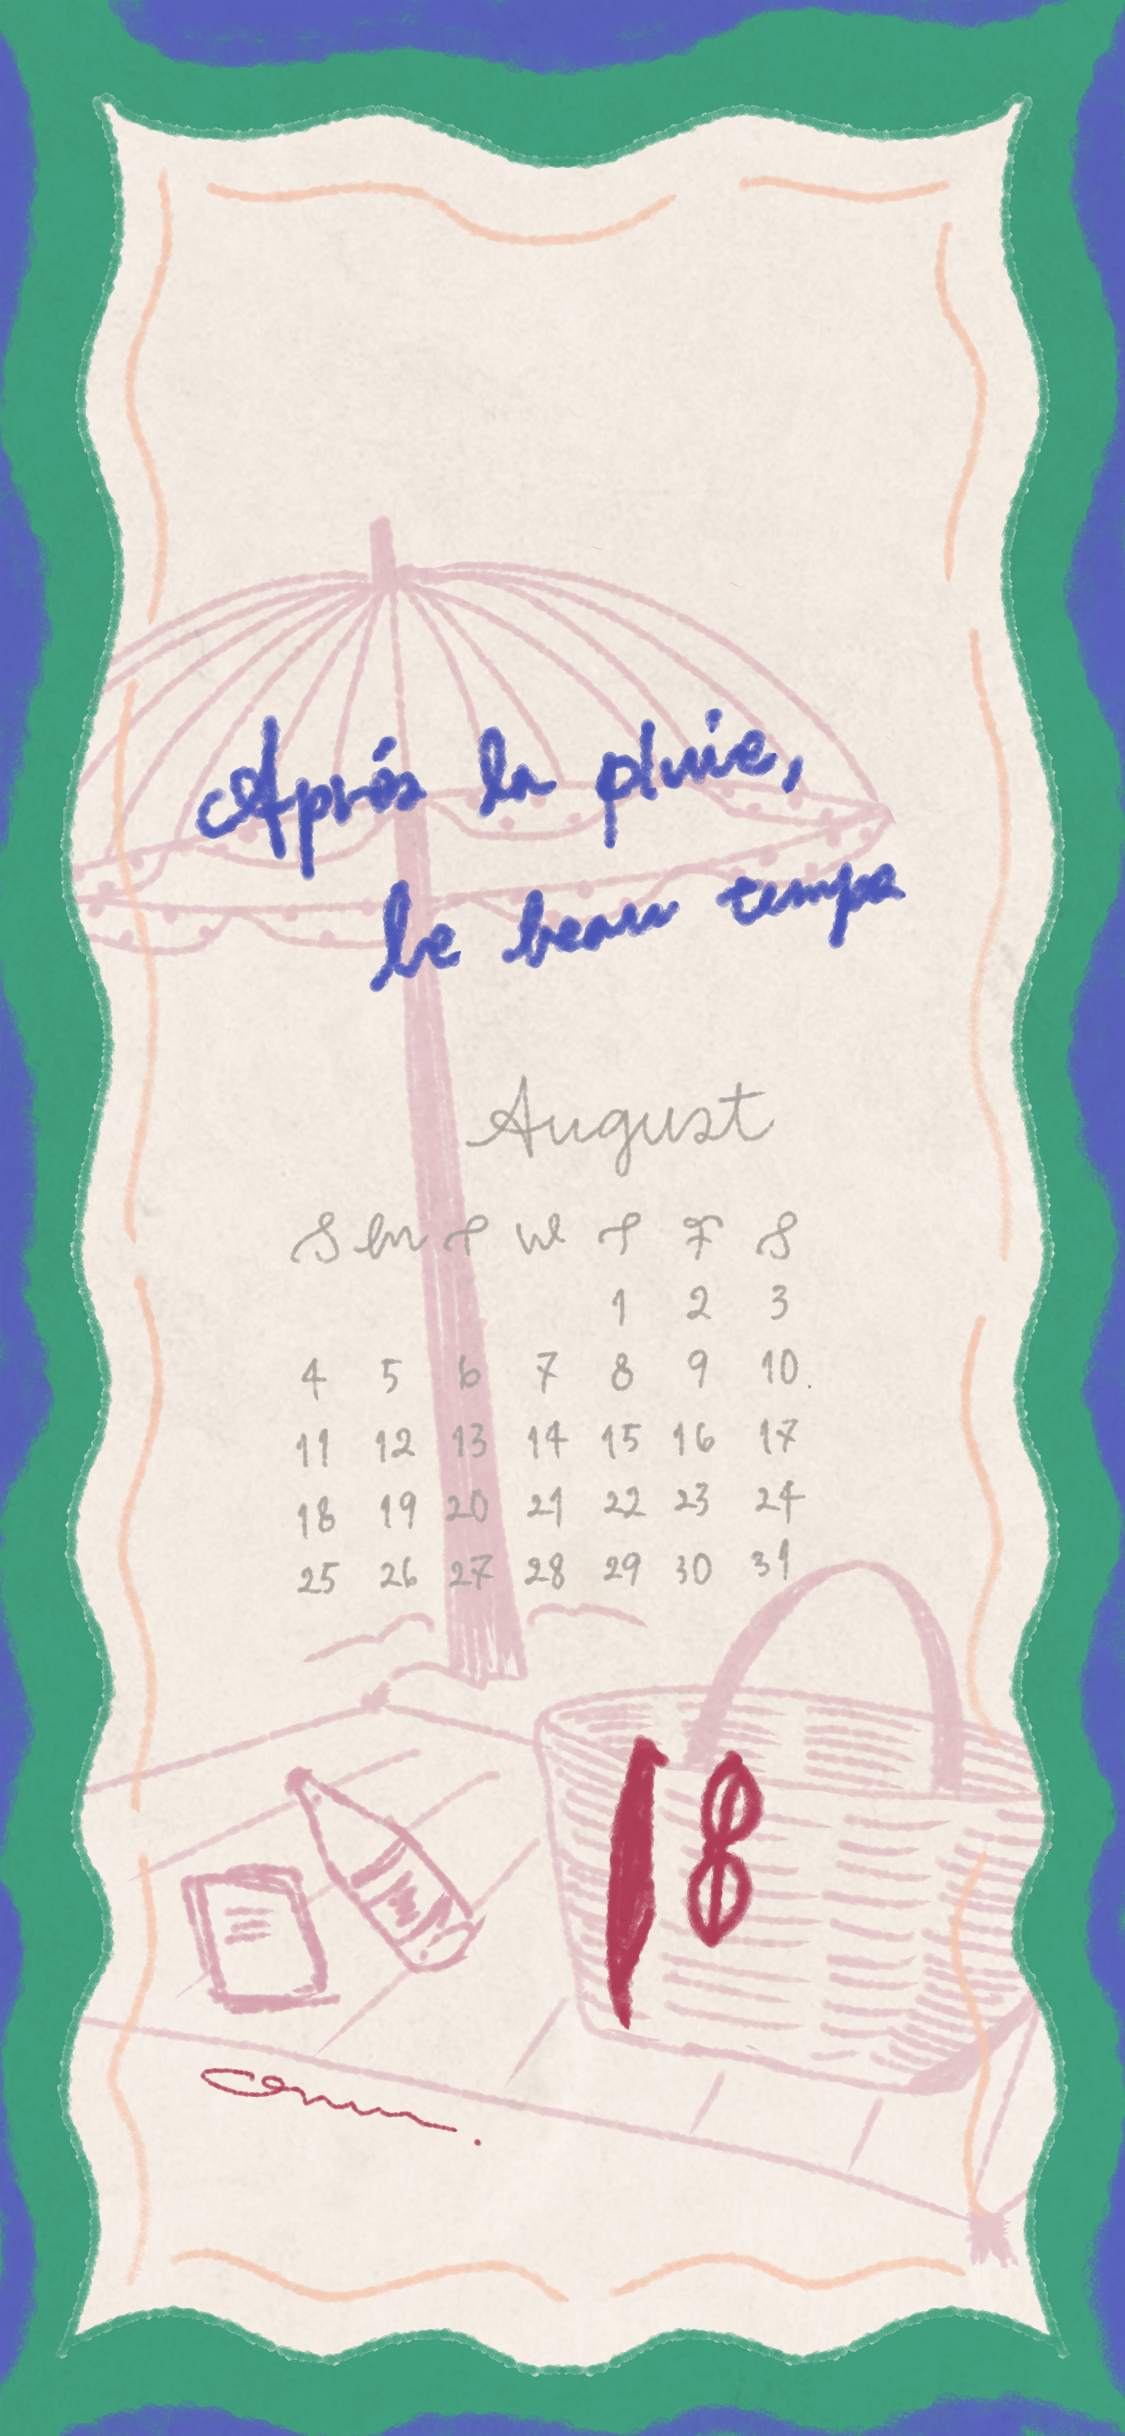 Après la pluie,
le beau temps
August
S M T W T F S
1 2 3
4 5 6 7 8 9 10
11 12 13 14 15 16 17
18 19 20 21 22 23 24
25 26 27 28 29 30 31
18